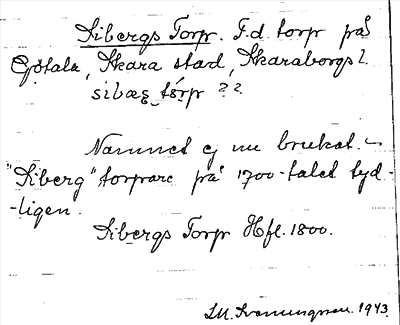 Sibergs Torp. F.d. torp på
Götala, Skara stad, Skaraborgs l.
sibæʂ tórp ??
Namnet ej nu brukat. –
"Siberg" torpare på 1700-talet tyd-
-ligen.
Sibergs Torp Hfl. 1800.
1943.